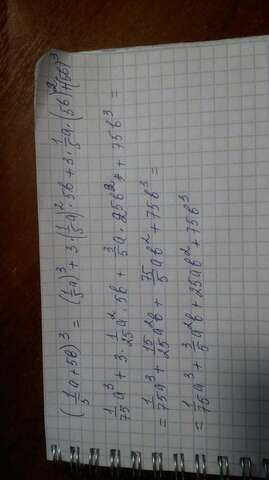 (1/5 a + 5b)³ = (1/5 a)³ + 3 · (1/5 a)² · 5b + 3 · 1/5 a · (5b)² + (5b)³
1/75 a³ + 3 · 1/25 a² · 5b + 3/5 a · 25b² + 75b³ =
= 1/75 a³ + 15/25 a²b + 75/5 ab² + 75b³ =
= 1/75 a³ + 3/5 a²b + 25ab² + 75b³